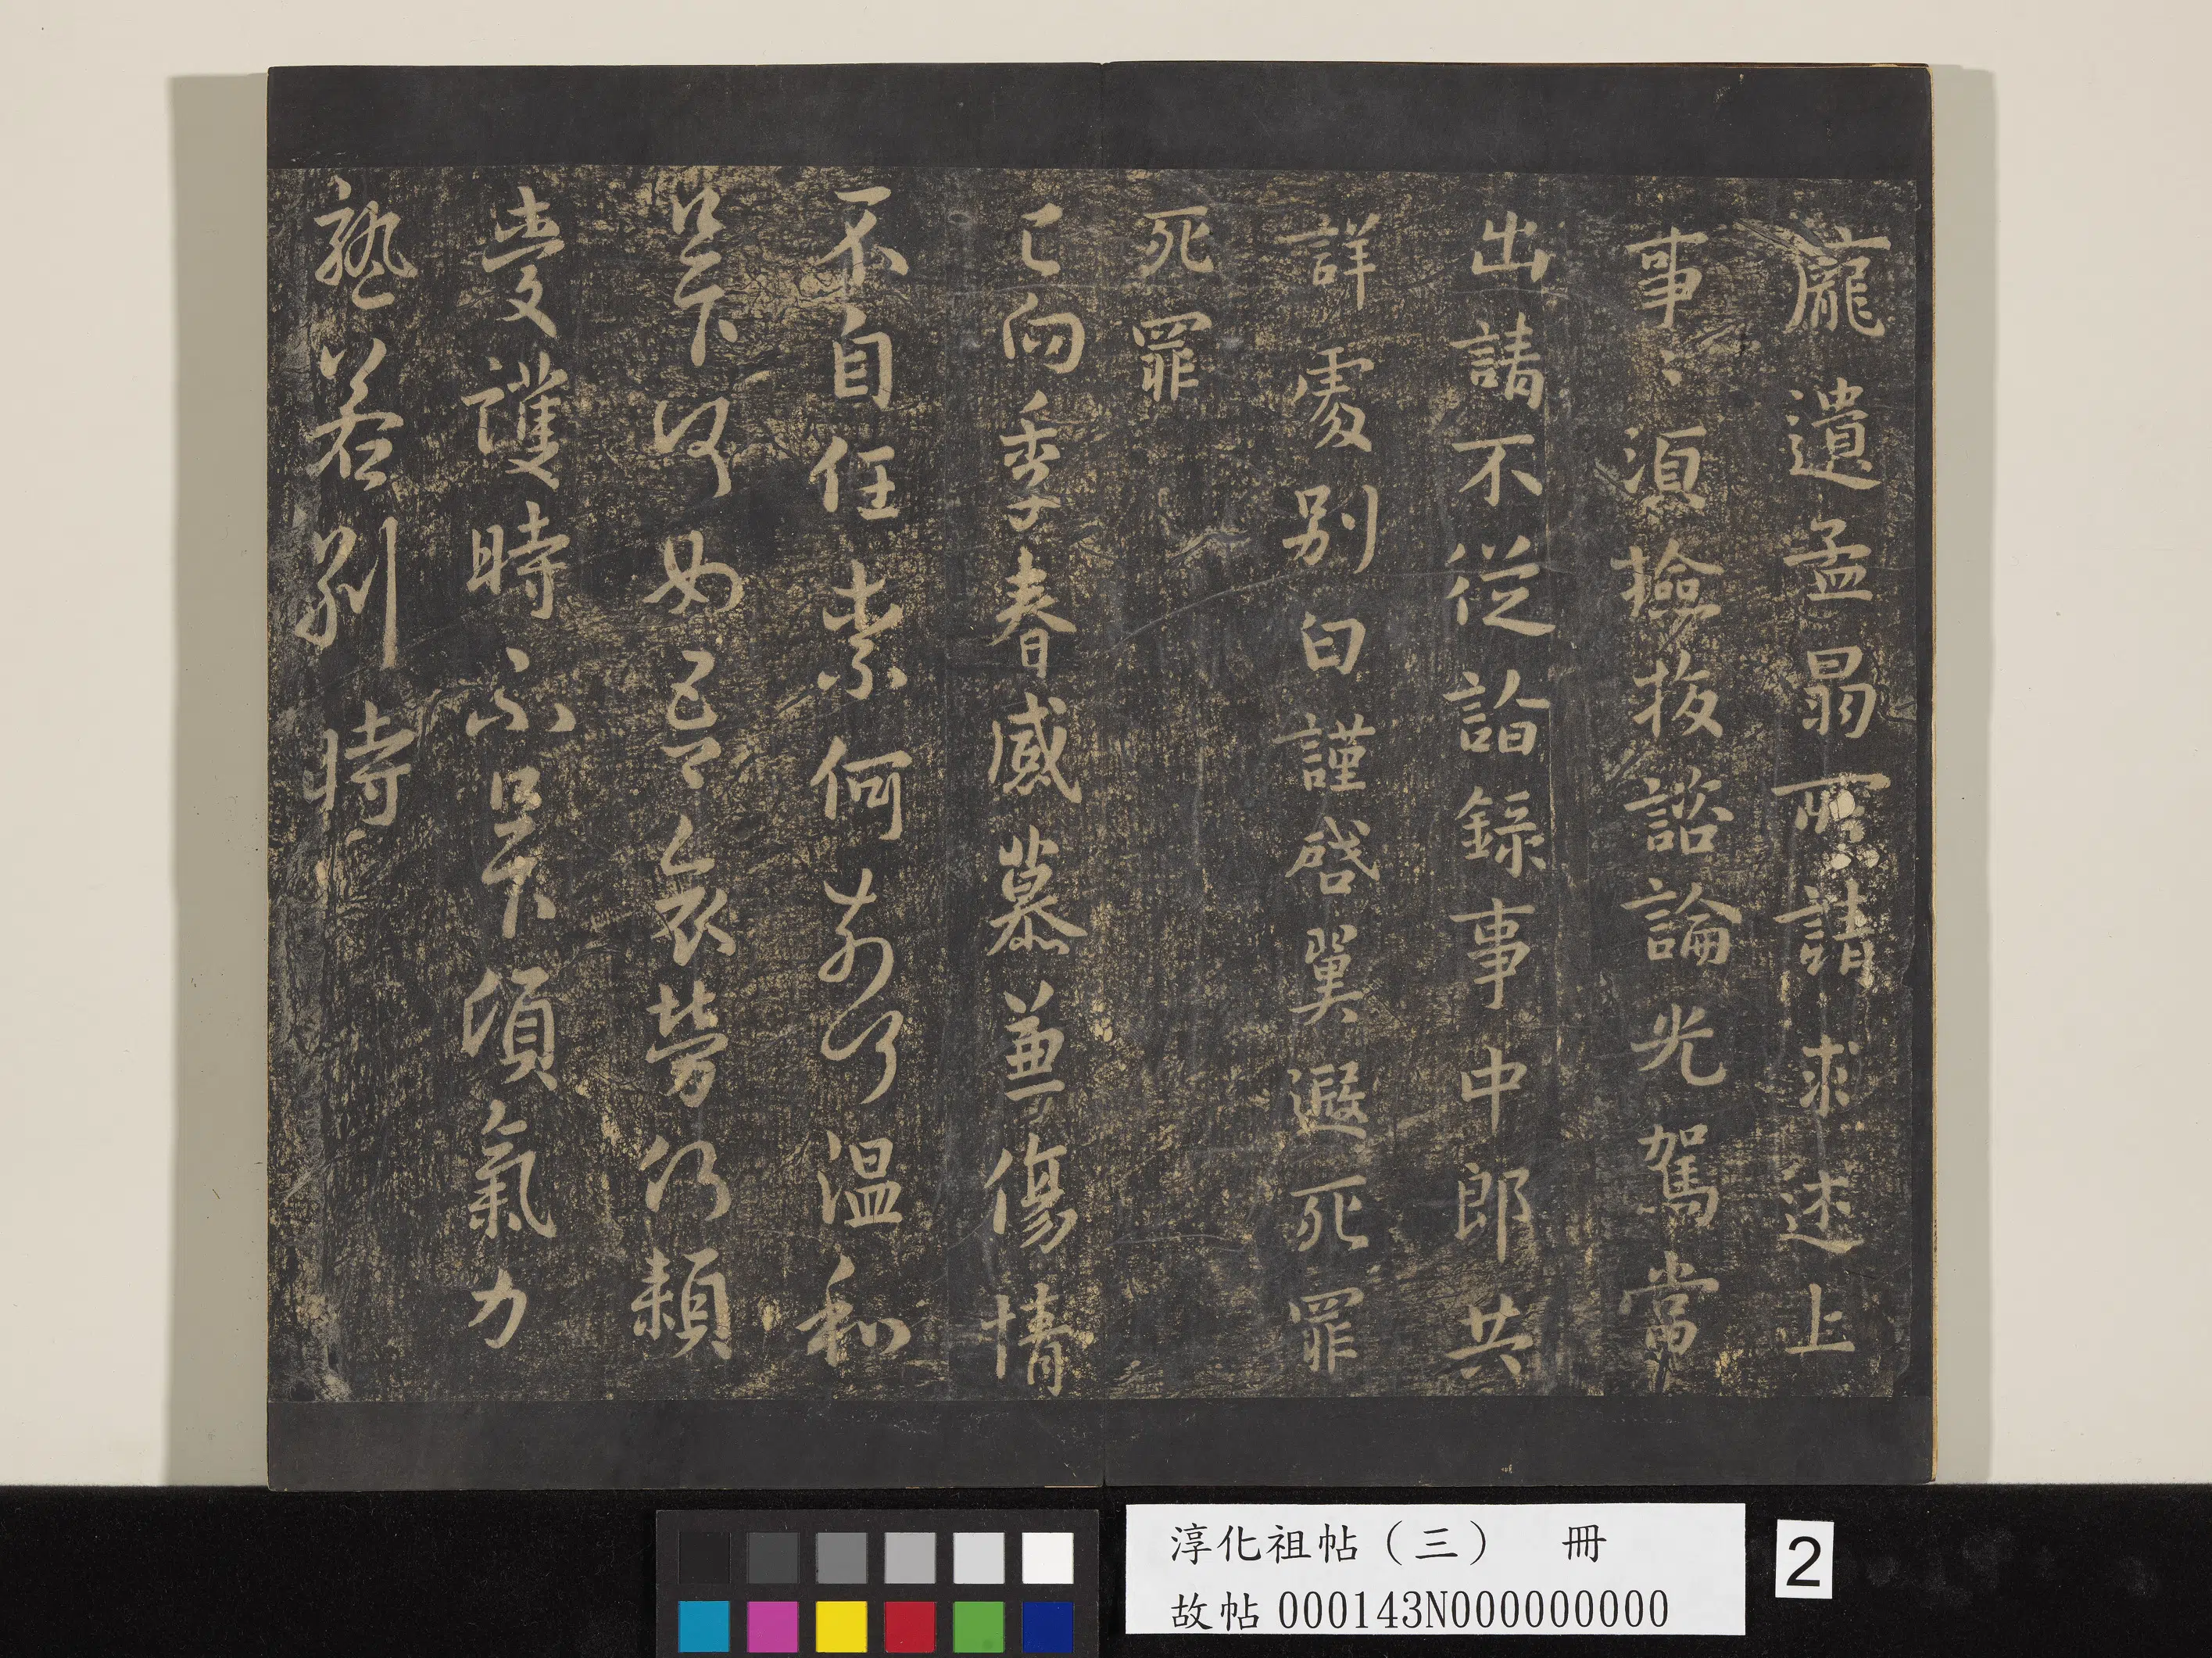 龐遺孟昺所請求述上
事〻須撿校諮論光駕當
出請不從詣錄事中郎共
詳處別白謹啓翼遐死罪
死罪
已向季春感慕兼傷情
不自任奈何奈何溫和
足下何如吾哀勞何賴
愛護時否足下傾氣力
孰若別時
淳化祖帖（三）　冊
故帖000143N000000000
2